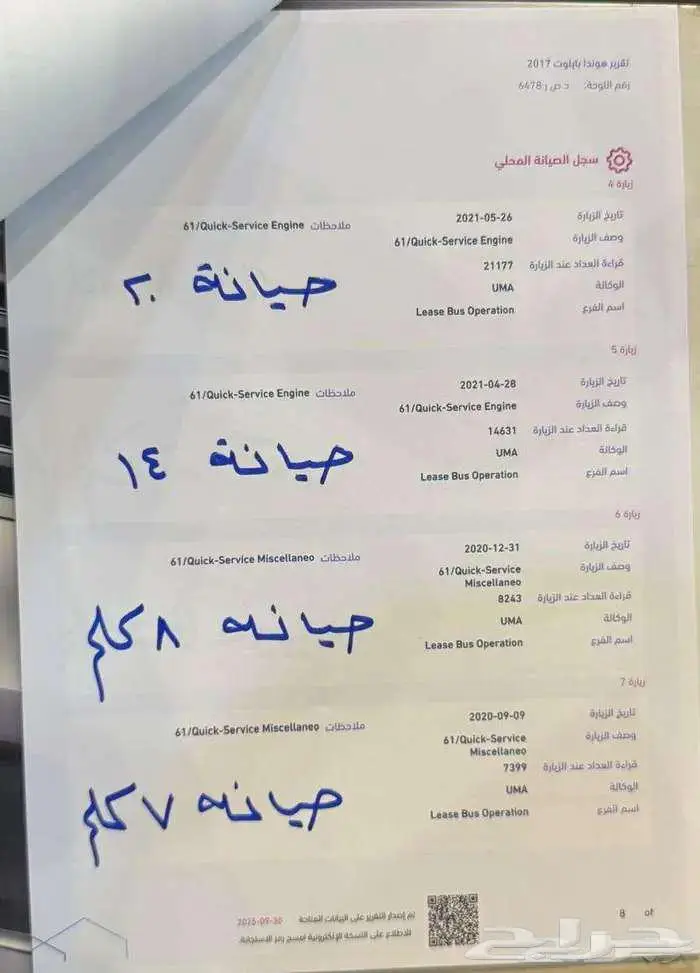 تقرير هوندا بايلوت 2017
رقم اللوحة: د ص ر 6478
سجل الصيانة المحلي
زيارة 4
تاريخ الزيارة 2021-05-26
ملاحظات 61/Quick-Service Engine
وصف الزيارة 61/Quick-Service Engine
قراءة العداد عند الزيارة 21177
صيانة ٢٠
الوكالة UMA
اسم الفرع Lease Bus Operation
زيارة 5
تاريخ الزيارة 2021-04-28
ملاحظات 61/Quick-Service Engine
وصف الزيارة 61/Quick-Service Engine
قراءة العداد عند الزيارة 14631
صيانة ١٤
الوكالة UMA
اسم الفرع Lease Bus Operation
زيارة 6
تاريخ الزيارة 2020-12-31
ملاحظات 61/Quick-Service Miscellaneo
وصف الزيارة 61/Quick-Service
Miscellaneo
قراءة العداد عند الزيارة 8243
صيانه ٨ كلم
الوكالة UMA
اسم الفرع Lease Bus Operation
زيارة 7
تاريخ الزيارة 2020-09-09
ملاحظات 61/Quick-Service Miscellaneo
وصف الزيارة 61/Quick-Service
Miscellaneo
قراءة العداد عند الزيارة 7399
صيانه ٧ كلم
الوكالة UMA
اسم الفرع Lease Bus Operation
تم إصدار التقرير على البيانات المتاحة 2025-09-30
للاطلاع على النسخة الإلكترونية امسح رمز الاستجابة
8 of
حراج